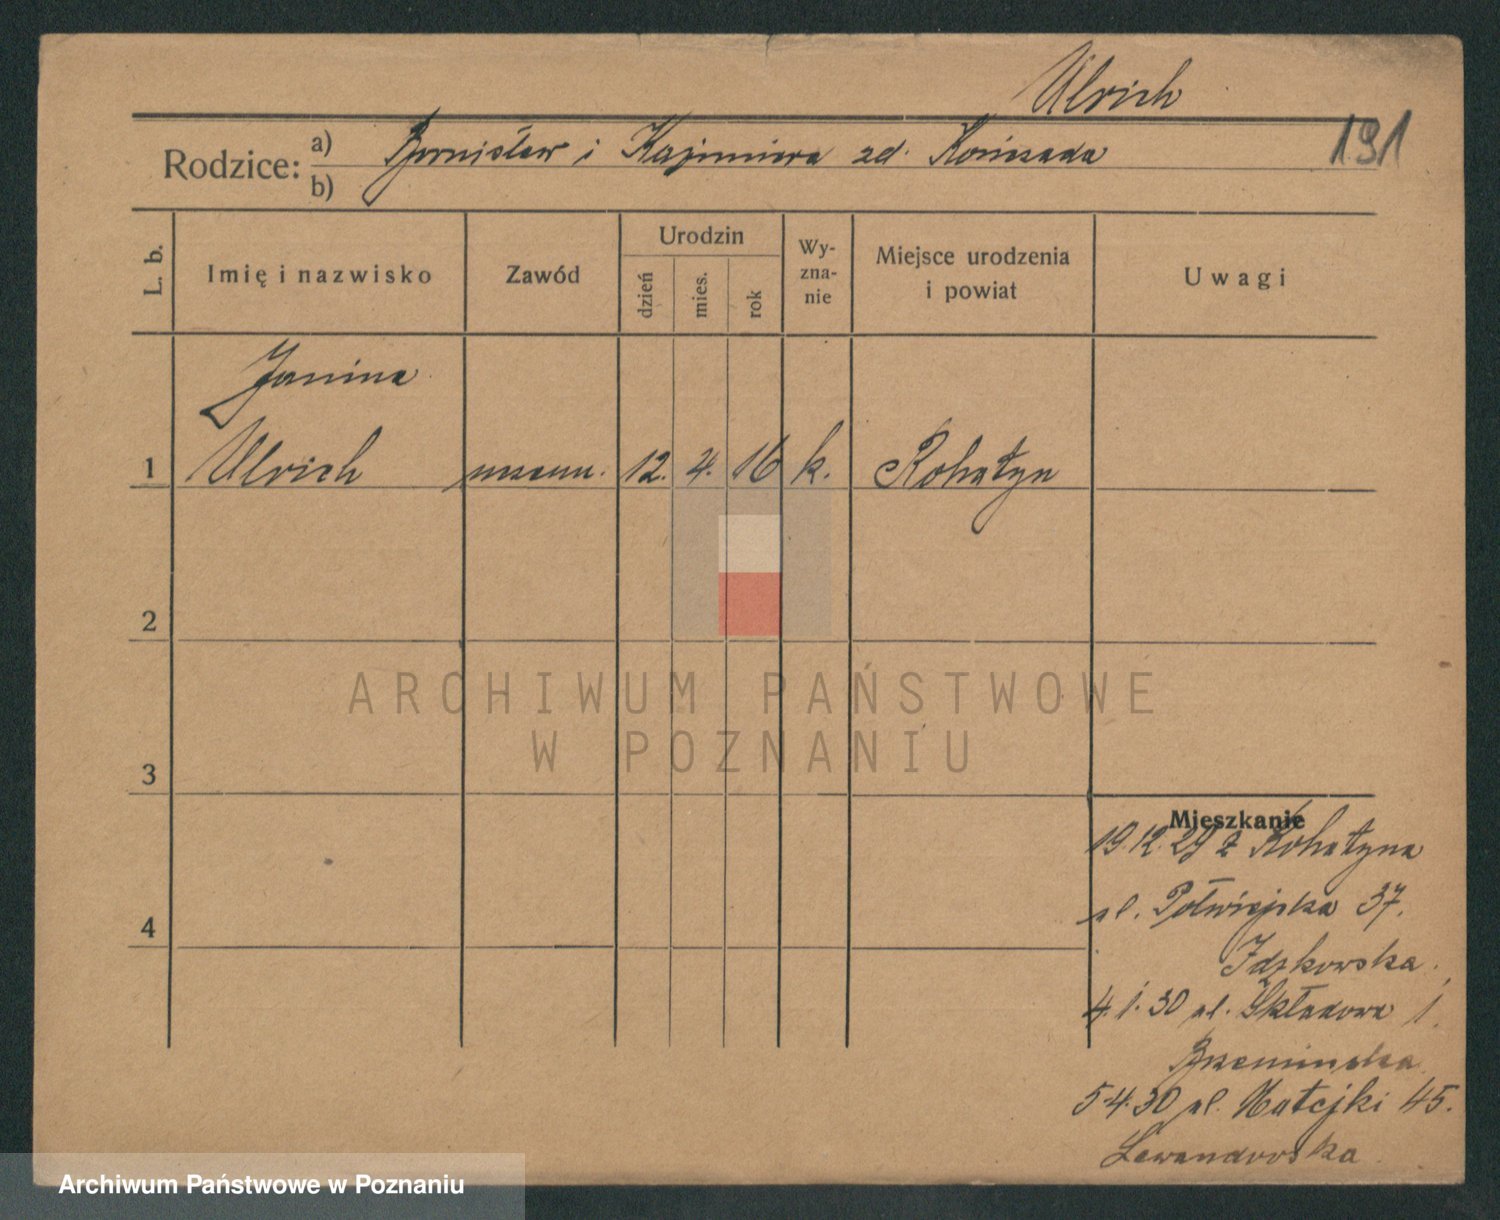 Ulrich
191
Rodzice: a) Bronisław i Kazimiera zd.
b)
L. b.
Imię i nazwisko
Zawód
Urodzin
dzień
mies.
rok
Wy-
zna-
nie
Miejsce urodzenia
i powiat
Uwagi
Janina
1 Ulrich uczenn. 12. 4. 16 k. Rohatyn
2
3
4
Mieszkanie
19.12.29 z Rohatyna
ul. Półwiejska 37.
4.1.30 ul. Składowa 1.
5.4.30 ul. Matejki 45.
Lewandowska
ARCHIWUM PAŃSTWOWE
W POZNANIU
Archiwum Państwowe w Poznaniu